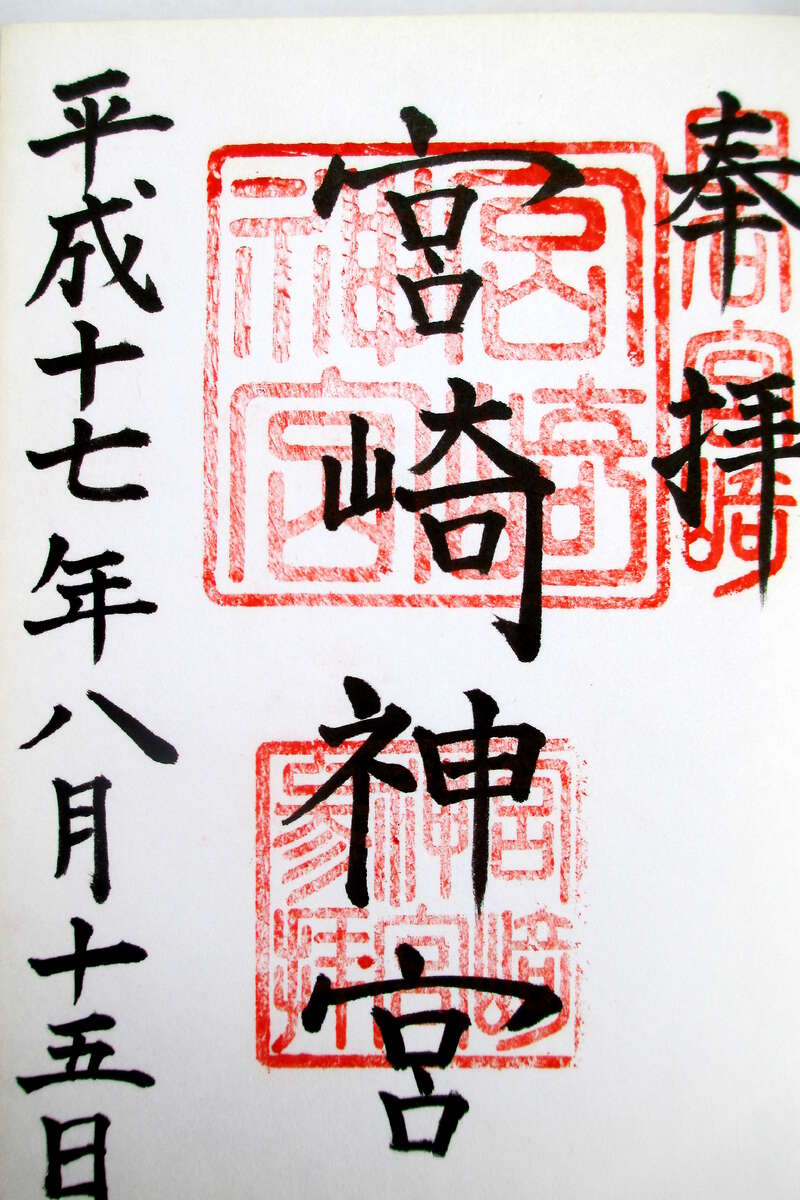 奉拝
日向宮崎
宮崎神宮
宮崎
神宮
宮崎
神宮
參拜
平成十七年八月十五日